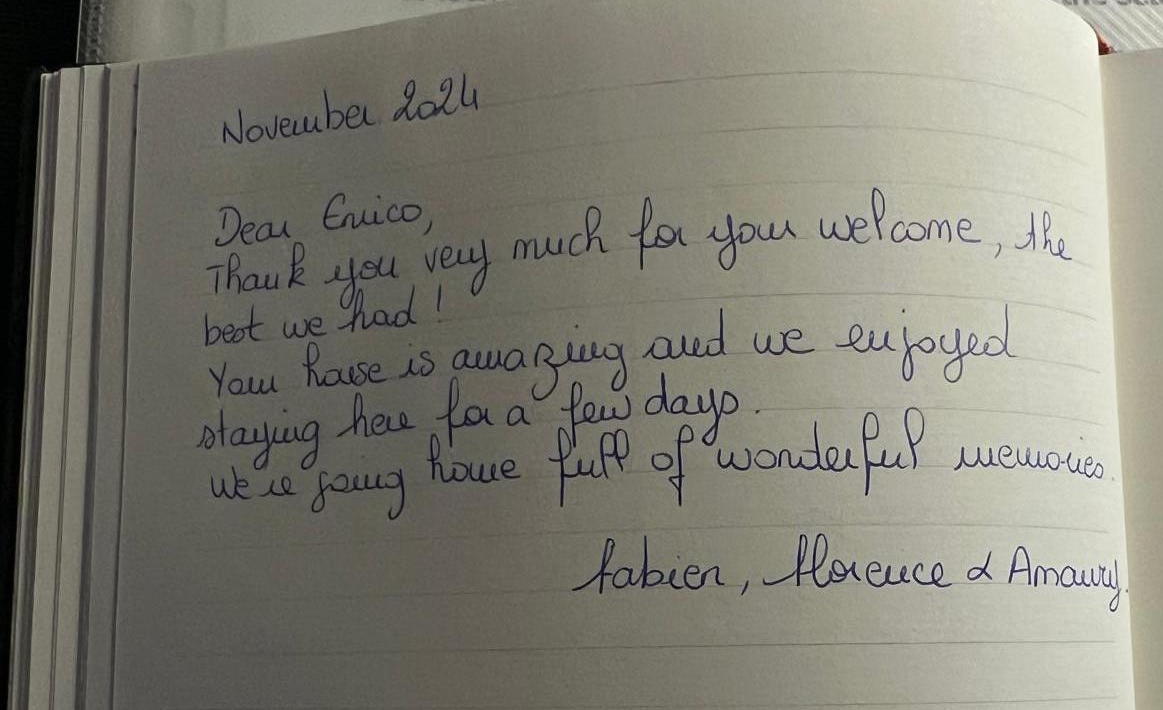 November 2024
Dear Enrico,
Thank you very much for your welcome, the
best we had!
Your house is amazing and we enjoyed
staying here for a few days.
We're going home full of wonderful memories.
Fabien, Florence & Amaury.